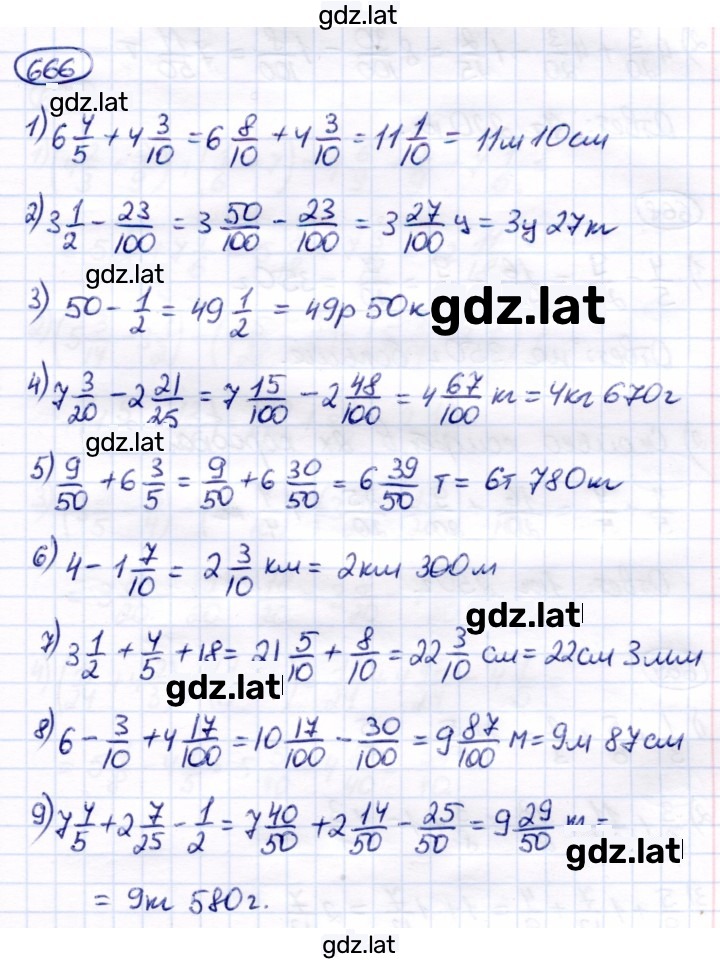 gdz.lat
666
gdz.lat
1) 6 4/5 + 4 3/10 = 6 8/10 + 4 3/10 = 11 1/10 = 11м 10см
2) 3 1/2 - 23/100 = 3 50/100 - 23/100 = 3 27/100 ц = 3ц 27кг
gdz.lat
3) 50 - 1/2 = 49 1/2 = 49р 50к
gdz.lat
4) 7 3/20 - 2 21/25 = 7 15/100 - 2 48/100 = 4 67/100 кг = 4кг 670г
gdz.lat
5) 9/50 + 6 3/5 = 9/50 + 6 30/50 = 6 39/50 т = 6т 780кг
6) 4 - 1 7/10 = 2 3/10 км = 2км 300м
gdz.lat
7) 3 1/2 + 4/5 + 18 = 21 5/10 + 8/10 = 22 3/10 см = 22см 3мм
gdz.lat
8) 6 - 3/10 + 4 17/100 = 10 17/100 - 30/100 = 9 87/100 м = 9м 87см
9) 7 4/5 + 2 7/25 - 1/2 = 7 40/50 + 2 14/50 - 25/50 = 9 29/50 кг =
gdz.lat
= 9кг 580г.
gdz.lat